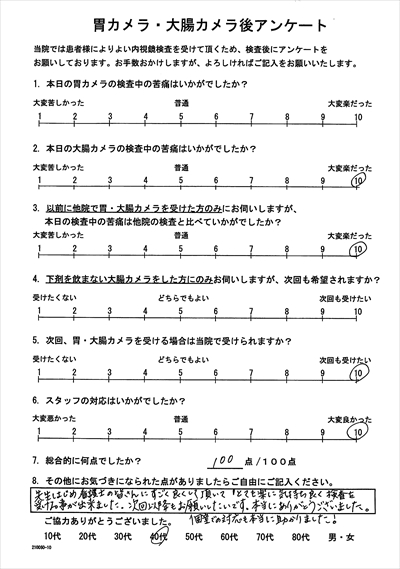 胃カメラ・大腸カメラ後アンケート
当院では患者様によりよい内視鏡検査を受けて頂くため、検査後にアンケートを
お願いしております。お手数おかけしますが、よろしければご記入をお願いいたします。
1. 本日の胃カメラの検査中の苦痛はいかがでしたか？
大変苦しかった 普通 大変楽だった
1 2 3 4 5 6 7 8 9 10
2. 本日の大腸カメラの検査中の苦痛はいかがでしたか？
大変苦しかった 普通 大変楽だった
1 2 3 4 5 6 7 8 9 10
3. 以前に他院で胃・大腸カメラを受けた方のみにお伺いしますが、
本日の検査中の苦痛は他院の検査と比べていかがでしたか？
大変苦しかった 普通 大変楽だった
1 2 3 4 5 6 7 8 9 10
4. 下剤を飲まない大腸カメラをした方にのみお伺いしますが、次回も希望されますか？
受けたくない どちらでもよい 次回も受けたい
1 2 3 4 5 6 7 8 9 10
5. 次回、胃・大腸カメラを受ける場合は当院で受けられますか？
受けたくない どちらでもよい 次回も受けたい
1 2 3 4 5 6 7 8 9 10
6. スタッフの対応はいかがでしたか？
大変悪かった 普通 大変良かった
1 2 3 4 5 6 7 8 9 10
7. 総合的に何点でしたか？ 100 点／100点
8. その他にお気づきになられた点がありましたらご自由にご記入ください。
先生はじめ看護士の皆さんにすごく良くして頂いてとても楽に気持ち良く検査を
受ける事が出来ました。次回以降もお願いしたいです。本当にありがとうございました。
個室での対応も本当に助かりました！
ご協力ありがとうございました。
10代 20代 30代 40代 50代 60代 70代 80代 男・女
210050-10